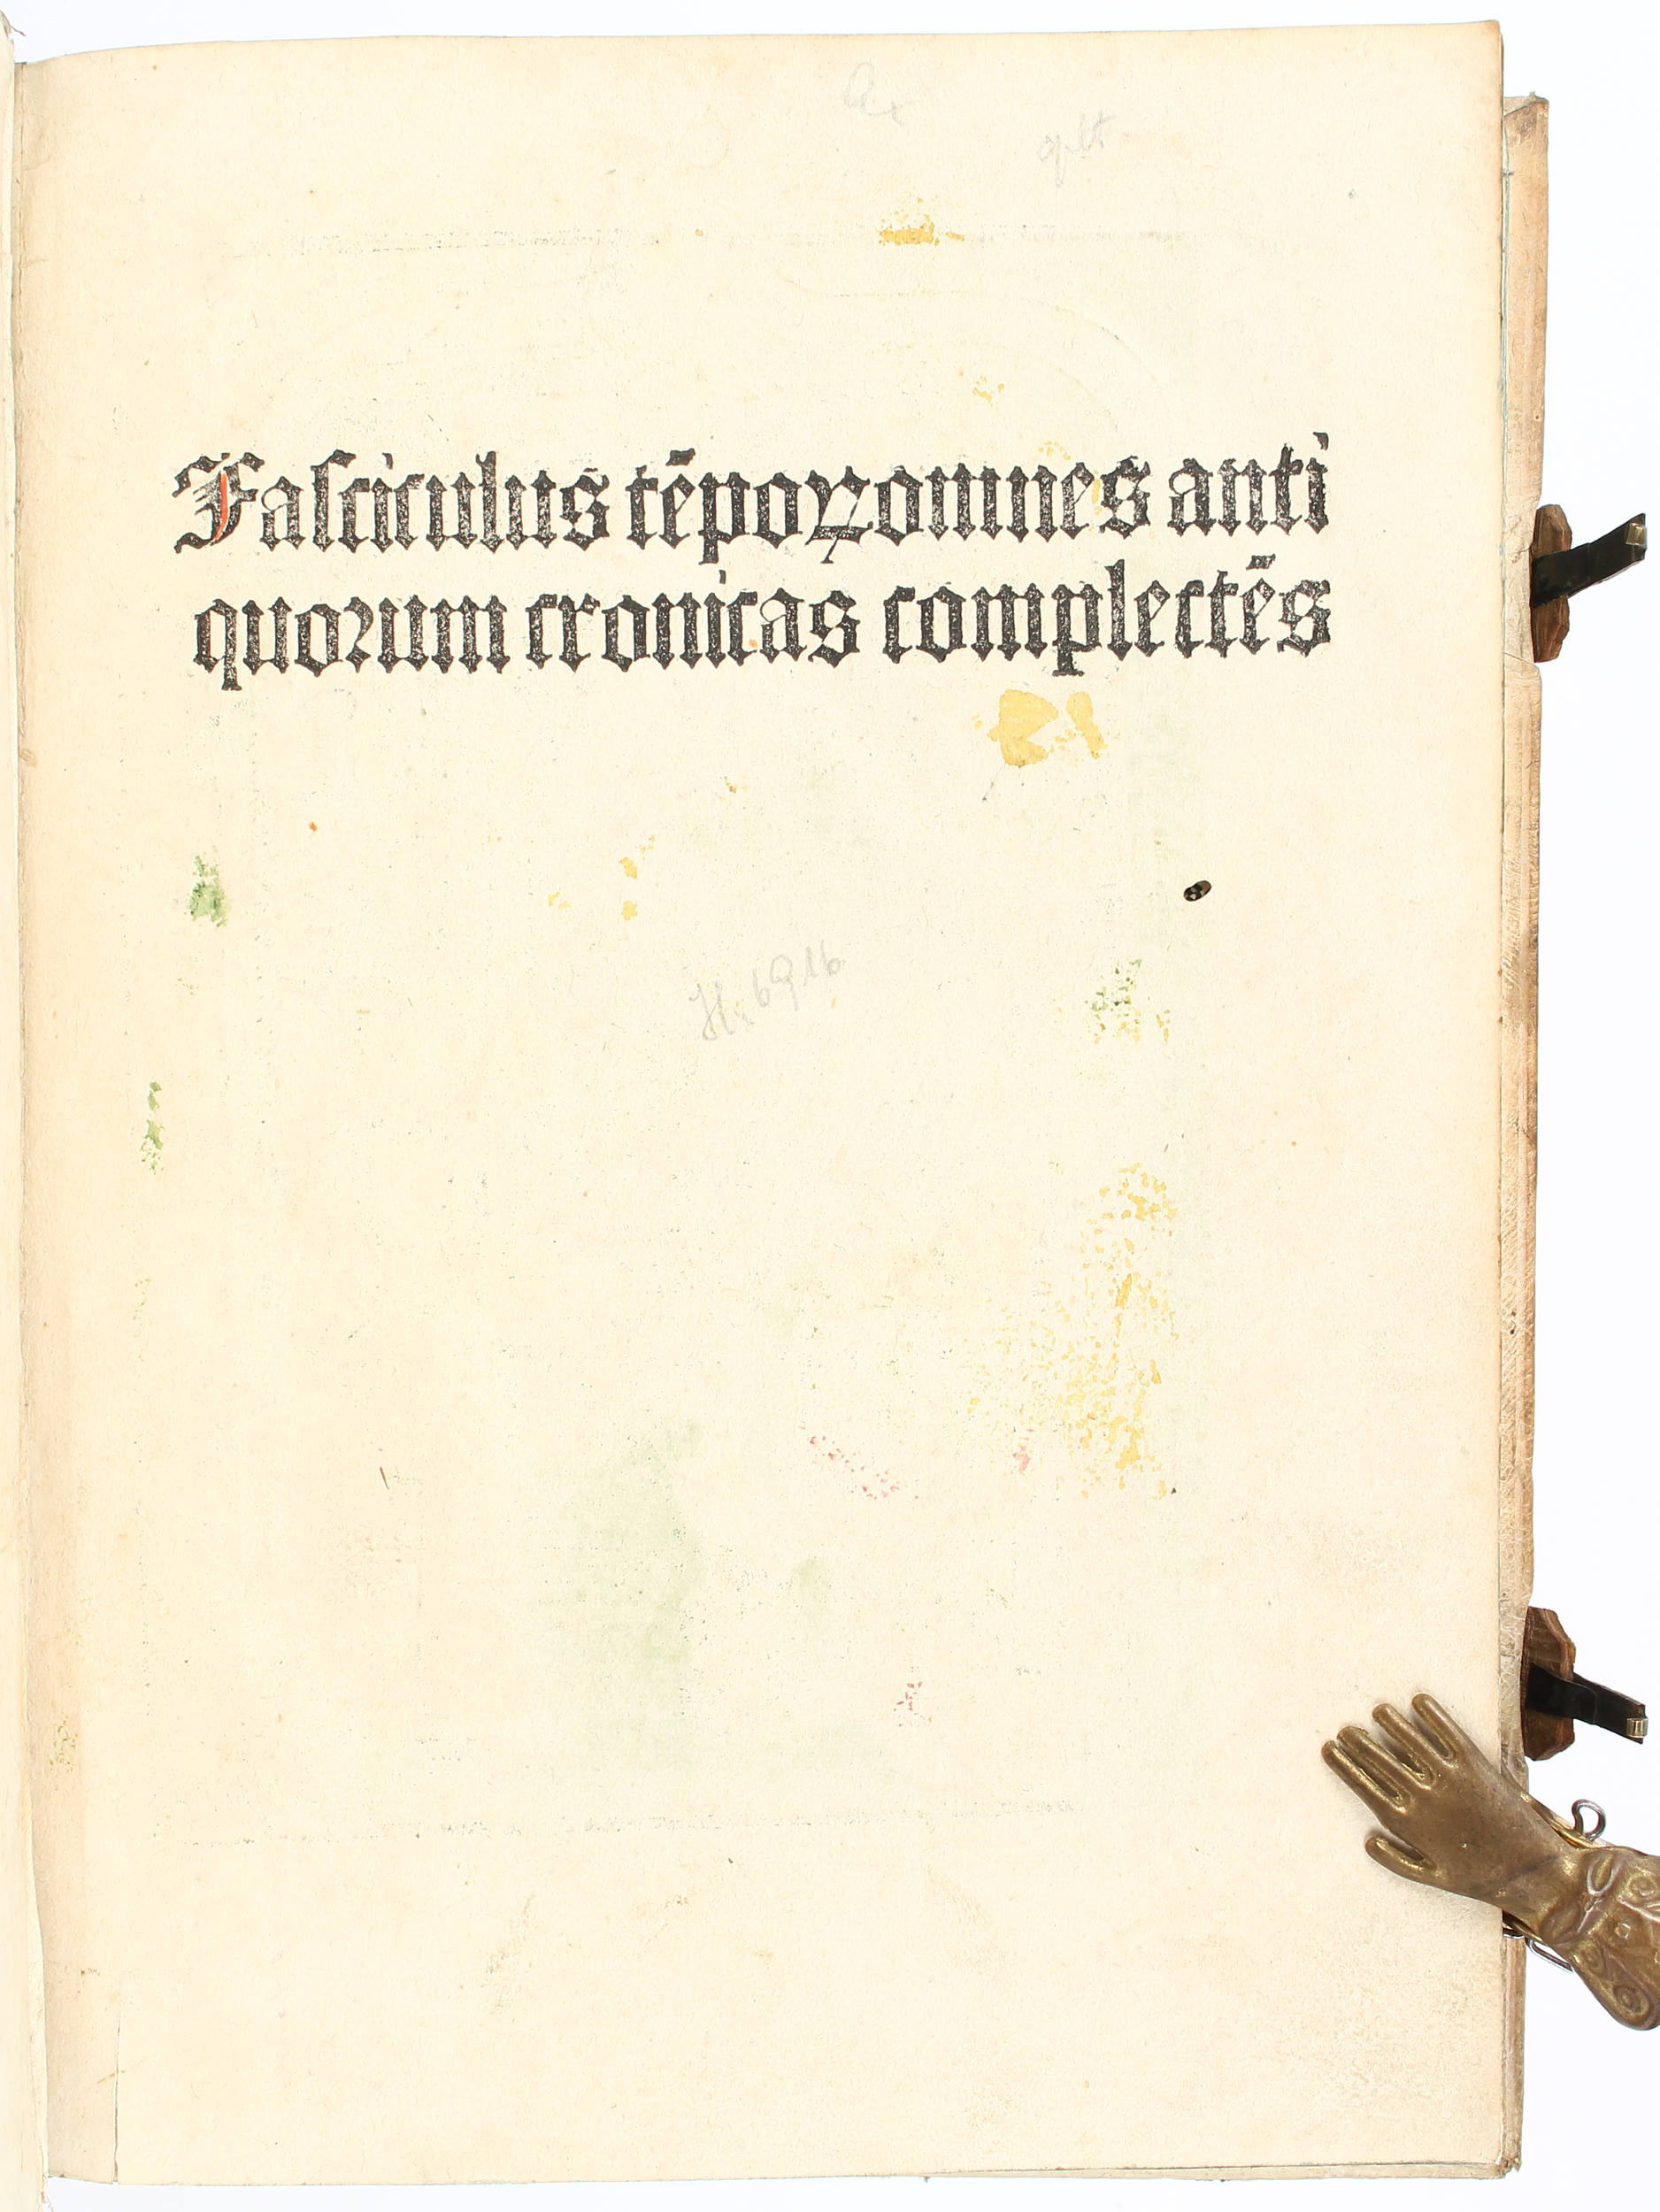 Faſciculus tēpoꝝ omnes anti
quorum cronicas complectēs
H. 6916